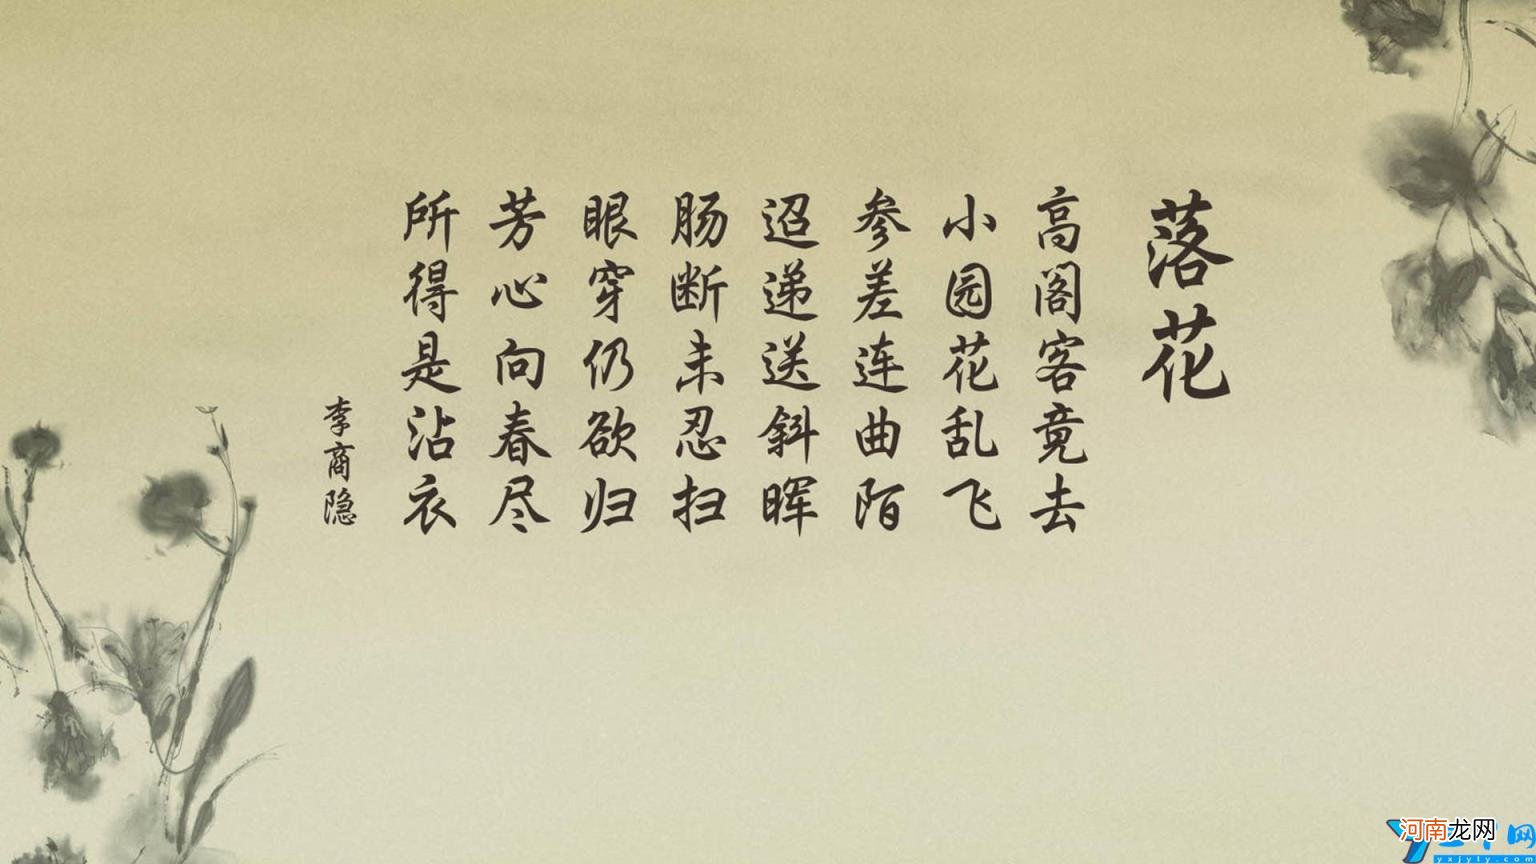 落花
高阁客竟去
小园花乱飞
参差连曲陌
迢递送斜晖
肠断未忍扫
眼穿仍欲归
芳心向春尽
所得是沾衣
李商隐
河南龙网
yxjyly.com